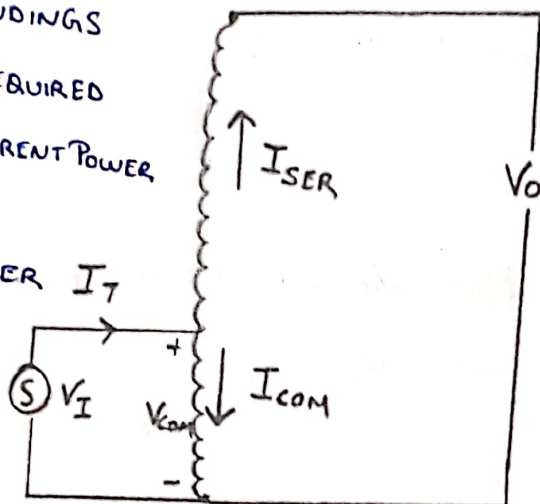 DINGS
QUIRED
RENT POWER
ER
I_SER
V_O
I_T
S
V_I
+
V_COM
I_COM
-